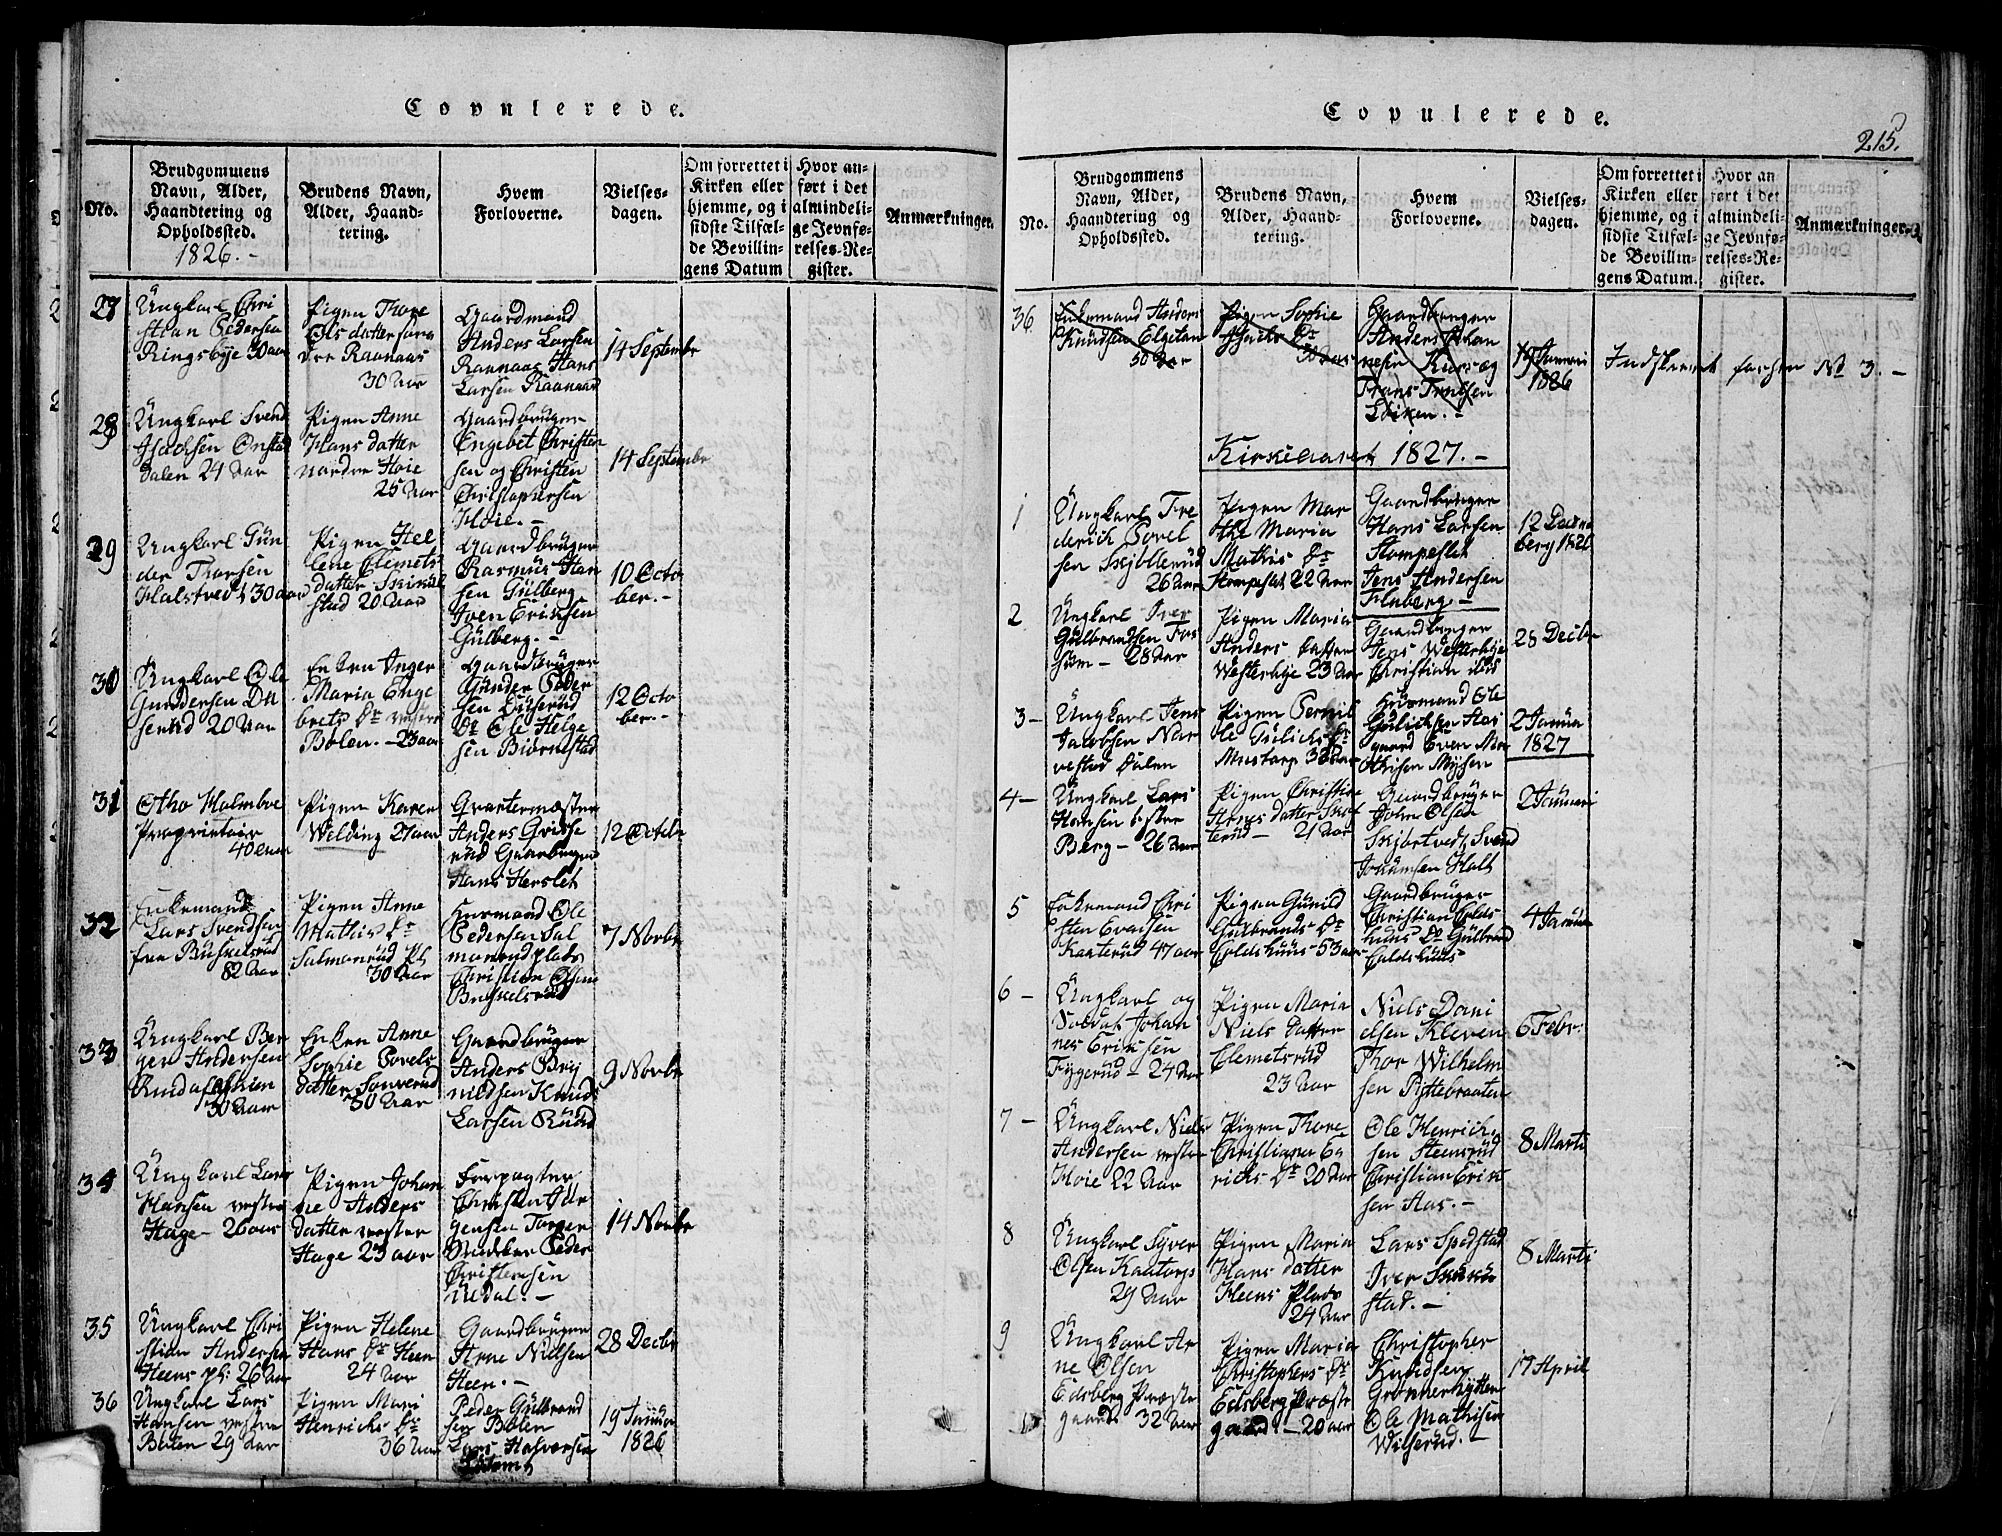 Copulerede.
No.
Brudgommens
Navn, Alder,
Haandtering og
Opholdssted.
1826. -
Brudens Navn,
Alder, Haand-
tering.
Hvem
Forloverne.
Vielses-
dagen.
Om forrettet i
Kirken eller
hjemme, og i
sidste Tilfæl-
de Bevillin-
gens Datum
Hvor an-
ført i det
almindeli-
ge Jevnfø-
relses-Re-
gister.
Anmærkninger.
27
Ungkarl Chri
stian Pedersen
Ringsbye 30 aar
Pigen Thore
Ols datter søn
dre Raanaas
30 Aar
Gaardmand
Anders Larsen
Raanaas Hans
Larsen Raanaas
14 Septembr
28
Ungkarl Svend
Isachsen Onstad
Dalen 24 Aar
Pigen Anne
Hans datter
nordre Hoie
25 Aar
Gaardbruger
Engebret Christen
sen og Christen
Christophersen
Hoie. -
14 Septembr
29
Ungkarl Gun
der Thorsen
Halstvedt 30 aar
Pigen Hel
lene Clemets
datter
stad 20 Aar
Gaardbruger
Rasmus Han
sen Gulberg
Iven Eriksen
Gulberg. -
10 Octo
ber. -
30
Ungkarl Ole
Gundersen Du
serud 20 Aar
Enken Inger
Maria Enge
brets Dr vestre
Bolen. - 23 aar
Gaardbruger
Gunder Peder
sen Duserud
Do Ole Helge
sen Biørnestad
12 Octo
ber. -
31
Otho Holmboe
Proprietair
40 aar
Pigen Karen
Welding 21 aar
Qvartermester
Anders Grisse
rud Gaarbruger
Hans Herslet
12 Octobr
32
Enkemand
Lars Svendsen
fra Buskelsrud
82 Aar
Pigen Anne
Mathis Dr
Salmonrud Pl
30 Aar
Husmand Ole
Pedersen Sal
monrud plads
Christian Olsen
Buskelsrud
7 Novbr
33
Ungkarl Ber
ger Andersen
30 Aar
Enken Anne
Sophie Povels
datter Sonverud
50 Aar
Gaardbruger
Anders Bry
nildsen Knud
Larsen Ruud
9 Novbr
34
Ungkarl Lars
Hansen vestre
Hage - 26 aar
Pigen Johan
ne Anders
datter vestre
Hage 23 aar
Forpagter
Christen Jür
gensen Torper
Snedker Peder
Christensen
Udal. -
14 Novbr
35
Ungkarl Chri
stian Andersen
Heens pl: 26 Aar
Pigen Helene
Hans Dr Heen
24 Aar
Gaardbruger
Arne Nielsen
Heen. -
28 Decbr
36
Ungkarl Lars
Hansen vestre
Bolen 29 Aar
Pigen Mari
Henrichs Dr
36 Aar
Peder Gulbrand
sen Bolen
Lars Halversen
19 Januar
1826
Copulerede.
215.
No.
Brudgommens
Navn, Alder,
Haandtering og
Opholdssted.
Brudens Navn,
Alder, Haand-
tering.
Hvem
Forloverne.
Vielses-
dagen.
Om forrettet i
Kirken eller
hjemme, og i
sidste Tilfæl-
de Bevillin-
gens Datum.
Hvor an
ført i det
almindeli-
ge Jevnfø-
relses-Re-
gister.
Anmærkninger.
36
Enkemand Anders
Knudsen Elgetan
50 Aar
Pigen Sophie
30 Aar
Gaardbruger
Anders Johan
nesen Kurs og
Frans Frantsen
Løiken. -
19 Januari
1826
Indskrevet forhen No 3. -
Kirkeaaret 1827. -
1
Ungkarl Fre
derich Povel
sen Skjøllerud
26 Aar
Pigen Mar
the Maria
Mathis Dr
Stompeslet 22 Aar
Gaardbruger
Hans Larsen
Stompeslet
Jens Andersen
Fluberg. -
12 Decem
ber 1826
2
Ungkarl Iver
Gulbrandsen Fos
sum - 28 Aar
Pigen Maria
Anders datter
Westerbye 23 Aar
Gaardbruger
Jens Westerbye
Christian ibid
28 Decbr
3 -
Ungkarl Jens
Jacobsen Nar
vestad Dalen
Pigen Pernil
le Gulichs Dr
Mustorp 38 Aar
Husmand Ole
Gulichsen Aas
gaard Even Ma
thisen Mysen
2 Januar
1827
4 -
Ungkarl Lars
Hansen østre
Berg - 26 Aar
Pigen Christine
Arnes datter Skof
terud - 21 Aar
Gaardbruger
John Olsen
Skjortvedt, Svend
Johansen Holt
2 Januari
5
Enkemand Chri
sten Evensen
Kaaterud 47 aar
Pigen Gunild
Gulbrands Dr
Coldshuus 53 aar
Gaardbruger
Christian Colds
huus Do Gulbrand
Coldshuus
4 Januar
6 -
Ungkarl og
Soldat Johan
nes Eriksen
Fyggerud - 24 Aar
Pigen Maria
Niels Datter
Clemetsrud
23 Aar
Niels Dani
elsen Kleven
Thor Wilhelm
sen Pyttebraaten
6 Febr:
7 -
Ungkarl Niels
Andersen vestre
Hoie 22 Aar
Pigen Thore
Christiane Ee
richs Dr 20 Aar
Ole Henrich
sen Steensrud
Christian Erik
sen Aas. -
8 Marti
8
Ungkarl Syver
Olsen Kaatorp
29 Aar
Pigen Maria
Hans datter
Heens Plads
24 Aar
Lars Spedstad
Iver
stad. -
8 Marti
9
Ungkarl Ar
ne Olsen
Edsberg Præste
gaard 32 Aar
Pigen Maria
Christophers Dr
Edsberg Præste
gaard - 20 aar
Christopher
Knudsen
Grønnerhytten
Ole Mathisen
Wilserud. -
17 April